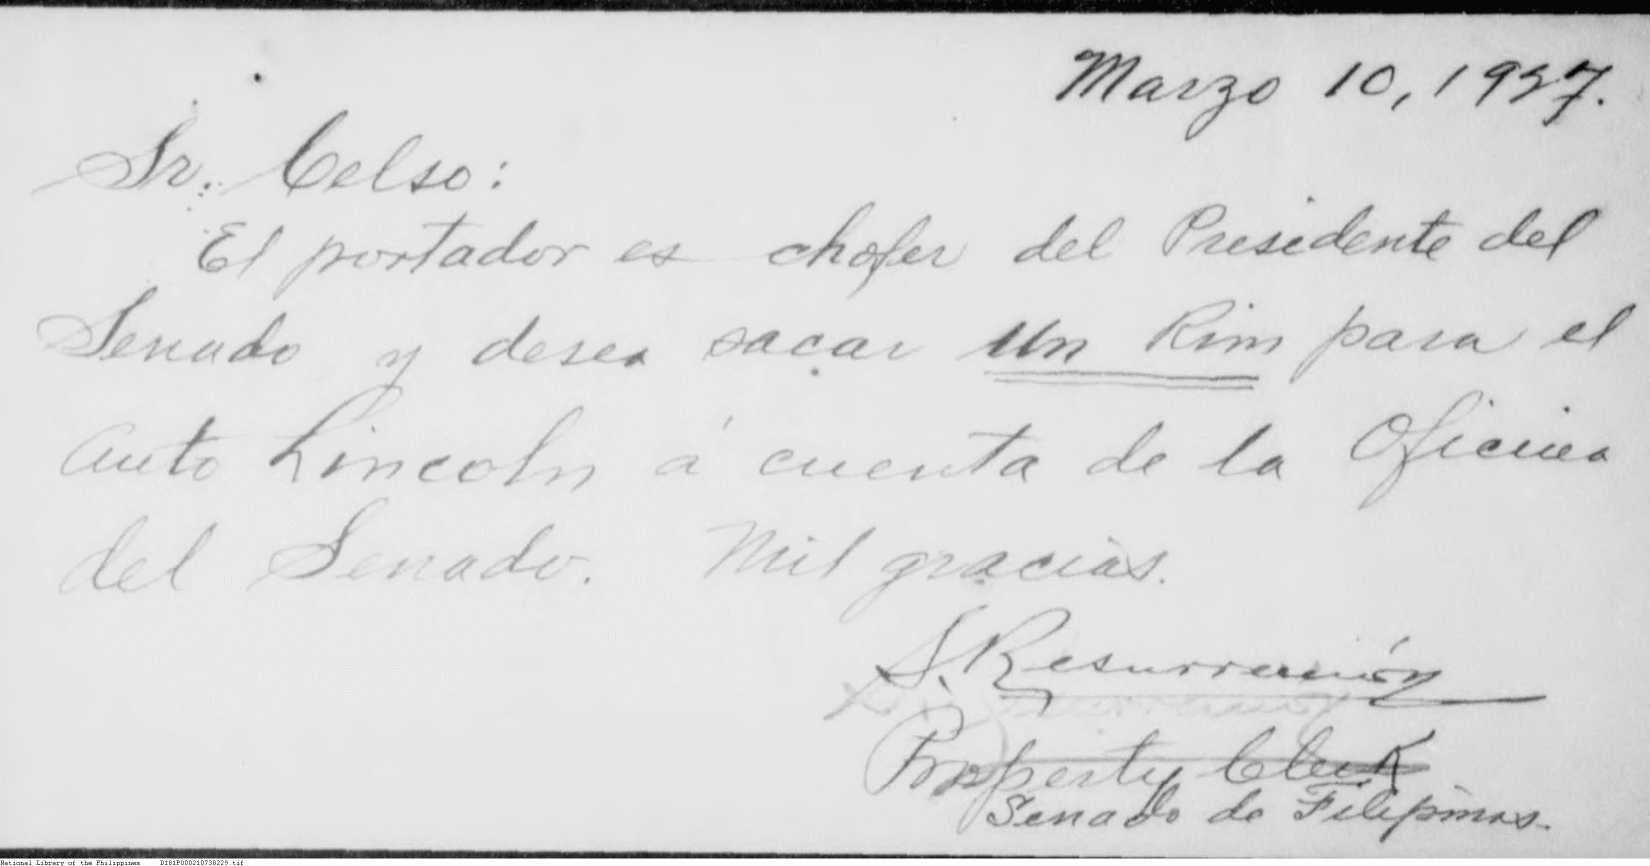 Marzo 10, 1927.
Sr. Celso:
El portador es chofer del Presidente del
Senado y desea sacar un Rim para el
auto Lincoln á cuenta de la Oficina
del Senado. Mil gracias.
S. Resurrección
Property Clerk
Senado de Filipinas.
National Library of the Philippines D181P000210738229.tif